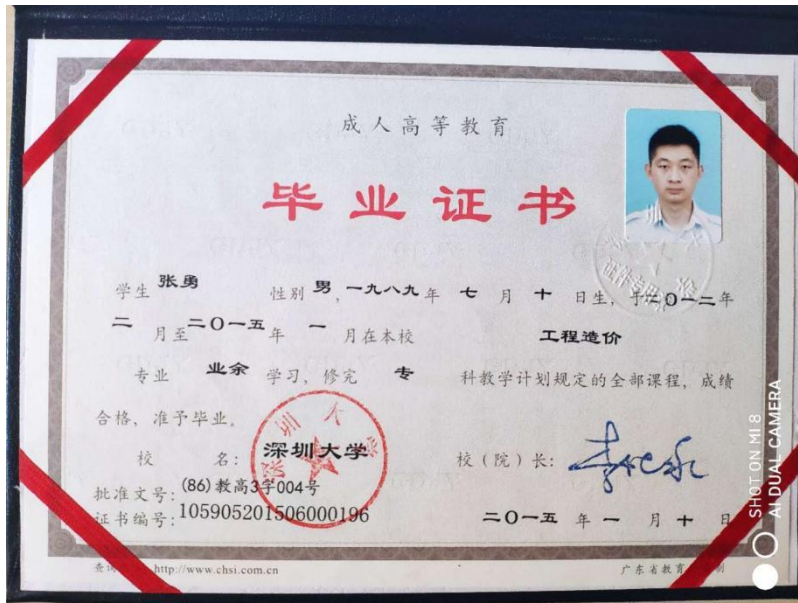 成人高等教育
毕业证书
学生 张勇 性别 男，一九八九年 七 月 十 日生，于二〇一二年
二 月至二〇一五年 一 月在本校 工程造价
专业 业余 学习，修完 专 科教学计划规定的全部课程，成绩
合格，准予毕业。
校 名：深圳大学 校（院）长：
批准文号：(86)教高3字004号
证书编号：105905201506000196 二〇一五 年 一 月 十 日
http://www.chsi.com.cn 广东省教育
深圳大学
SHOT ON MI 8
AI DUAL CAMERA